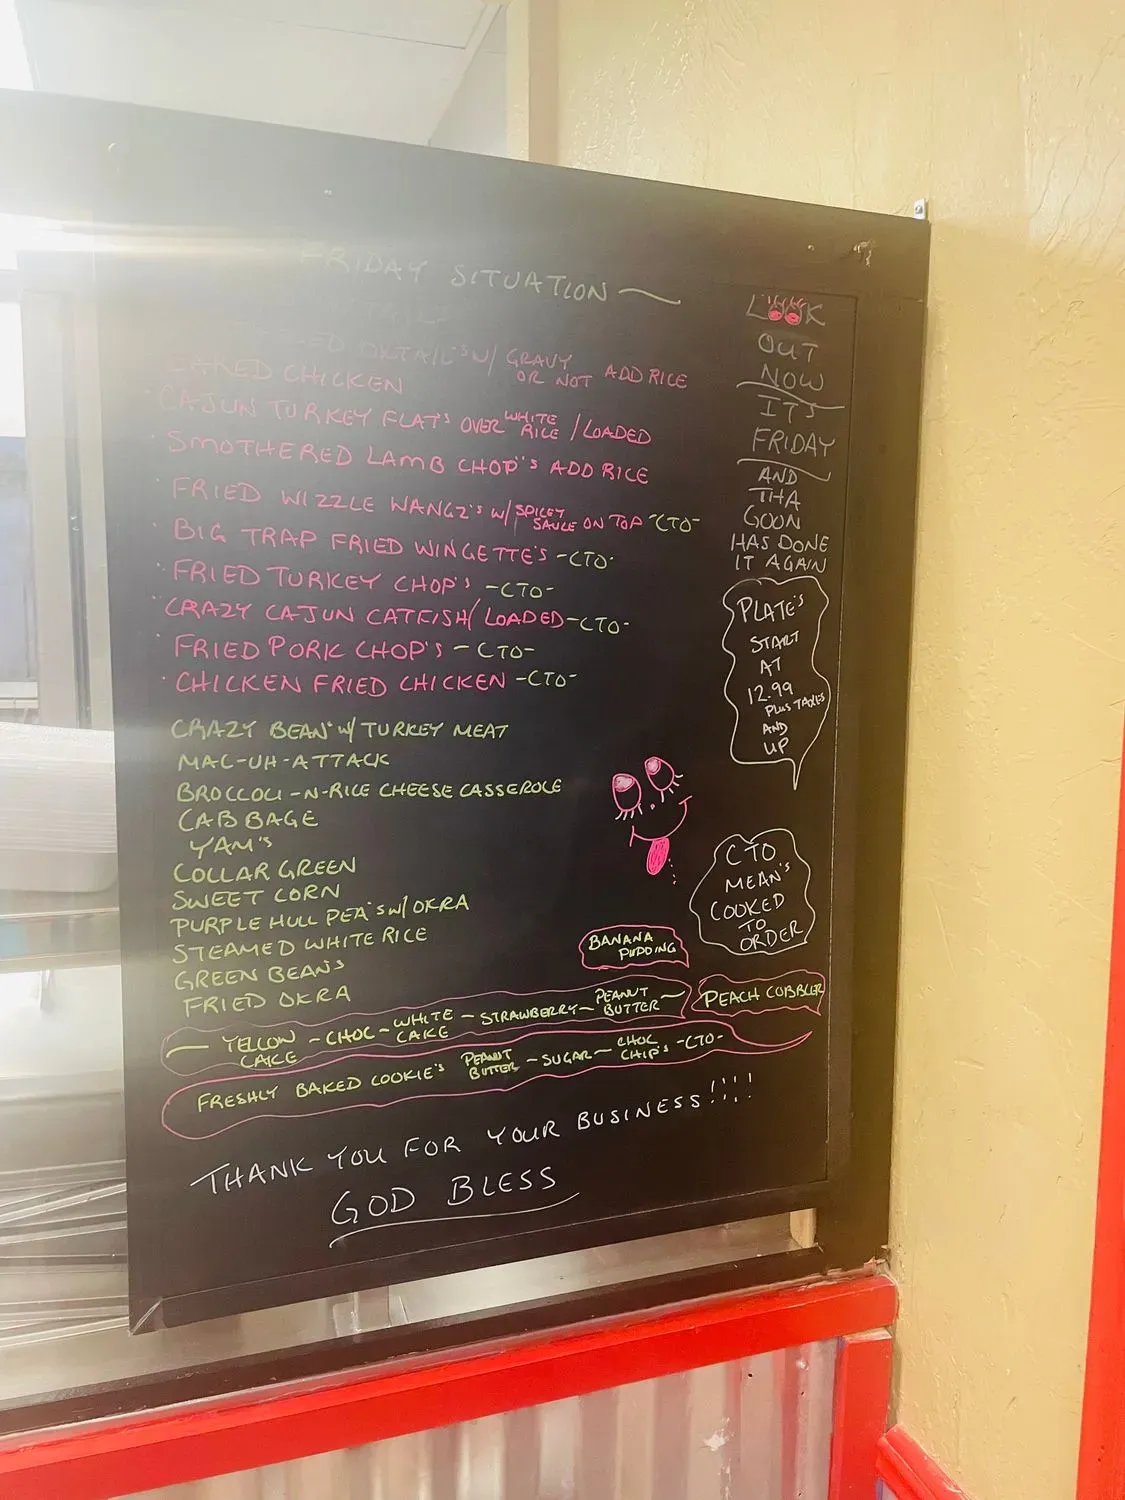 FRIDAY SITUATION
OXTAIL'S W/ GRAVY OR NOT ADD RICE
BAKED CHICKEN
CAJUN TURKEY FLAT'S OVER WHITE RICE / LOADED
SMOTHERED LAMB CHOP'S ADD RICE
FRIED WIZZLE WANGZ'S W/ SPICEY SAUCE ON TOP -CTO-
BIG TRAP FRIED WINGETTE'S -CTO-
FRIED TURKEY CHOP'S -CTO-
CRAZY CAJUN CATFISH/ LOADED -CTO-
FRIED PORK CHOP'S -CTO-
CHICKEN FRIED CHICKEN -CTO-
CRAZY BEAN'S W/ TURKEY MEAT
MAC-UH-ATTACK
BROCCOLI-N-RICE CHEESE CASSEROLE
CABBAGE
YAM'S
COLLAR GREEN
SWEET CORN
PURPLE HULL PEA'S W/ OKRA
STEAMED WHITE RICE
GREEN BEAN'S
FRIED OKRA
YELLOW CAKE - CHOC - WHITE CAKE - STRAWBERRY - PEANUT BUTTER
FRESHLY BAKED COOKIE'S PEANUT BUTTER - SUGAR - CHOC CHIP'S -CTO-
BANANA
PUDDING
PEACH COBBLER
LOOK
OUT
NOW
IT'S
FRIDAY
AND
THA
GOON
HAS DONE
IT AGAIN
PLATE'S
START
AT
12.99
PLUS TAXES
AND
UP
CTO
MEAN'S
COOKED
TO
ORDER
THANK YOU FOR YOUR BUSINESS!!!!
GOD BLESS